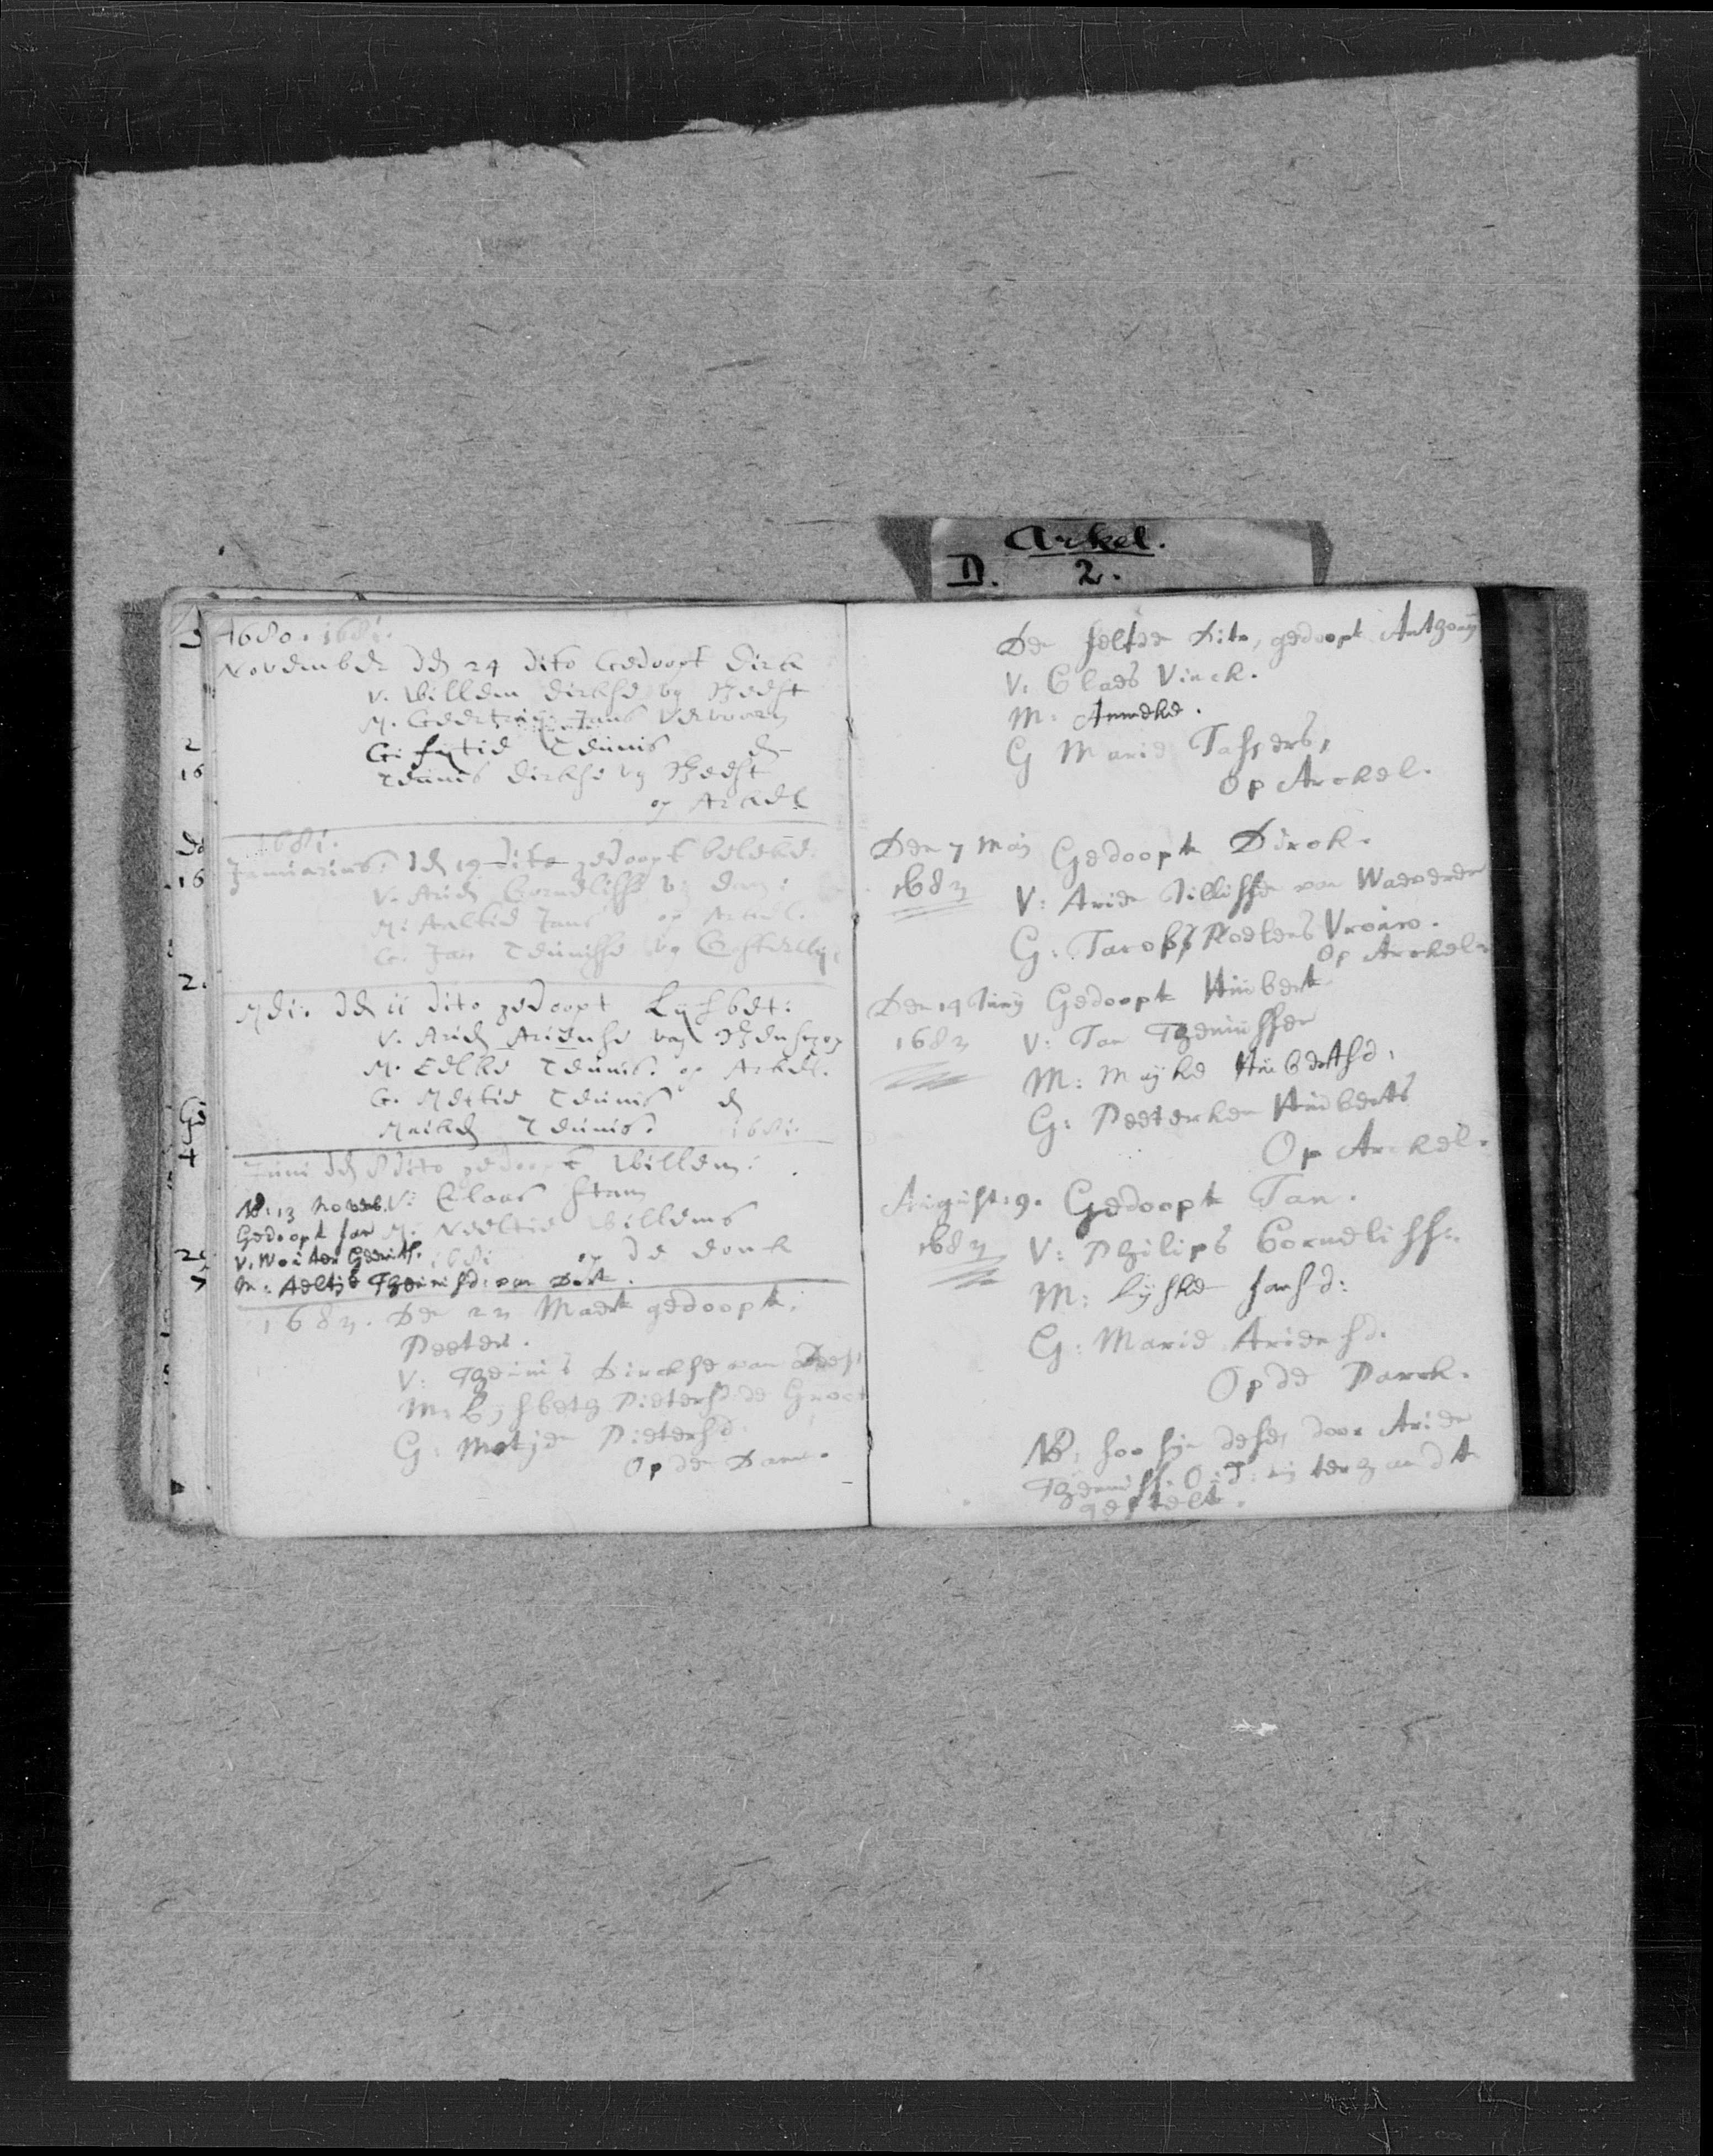 Arkel.
D. 2.
1680. 1681.
November den 24 dito Gedoopt Dirk
V. Willem Dirkse van Heest
M. Geertruij Jans Vervoorn
G. fijtie Teunis en
Teunis Dirkse van Heest
op Arkel
1681.
Januarius: den 19 dito gedoopt beleke:
V. Arien Cornelisse van dam:
M: Anltie Jans op Arkel.
G. Jan Teunisse van
Mei: den 11 dito gedoopt Lijsbet:
V. Arien Ariense van
M. Eelke Teunis. op Arkel.
G. Mertie Teunis en
Maiken Teunis: 1681.
Juni den 8 dito gedoopt Willem:
V: Claas Stam
M. Neeltie Willems
1681 op de donk
NB: 13 Novemb.
Gedoopt Jan
V. Wouter Gerritse.
M: Aeltje Theunisd: van
1683. Den 23 Maert gedoopt.
Peeter.
V: Theunis Dirckse van Hees
M: Lijsbeth Pietersd: de Groot
G: Metjen Pietersd.
Op den Dam.
Den selven Dito, gedoopt Anthony
V. Claes Vinck.
M: Anneke.
G Marie Tassers,
Op Arckel.
Den 7 Maij Gedoopt Dirck.
1683
V: Arien Jillissen van Waeverden
G: Jacob Roelens Vrouw.
Op Arckel.
Den 14 Junij Gedoopt Huibert
1683
V: Jan Theunissen
M: Mayke Huibertsd:
G: Peeterken Huiberts
Op Arckel.
August: 9. Gedoopt Jan.
1683
V: Philips Cornelisse:
M: Lijske Jansd:
G: Marie Ariensd.
Op de Parck.
NB: soo sijn dese, door Arien
Theuniss. O: T: mij ter handt
gestelt.